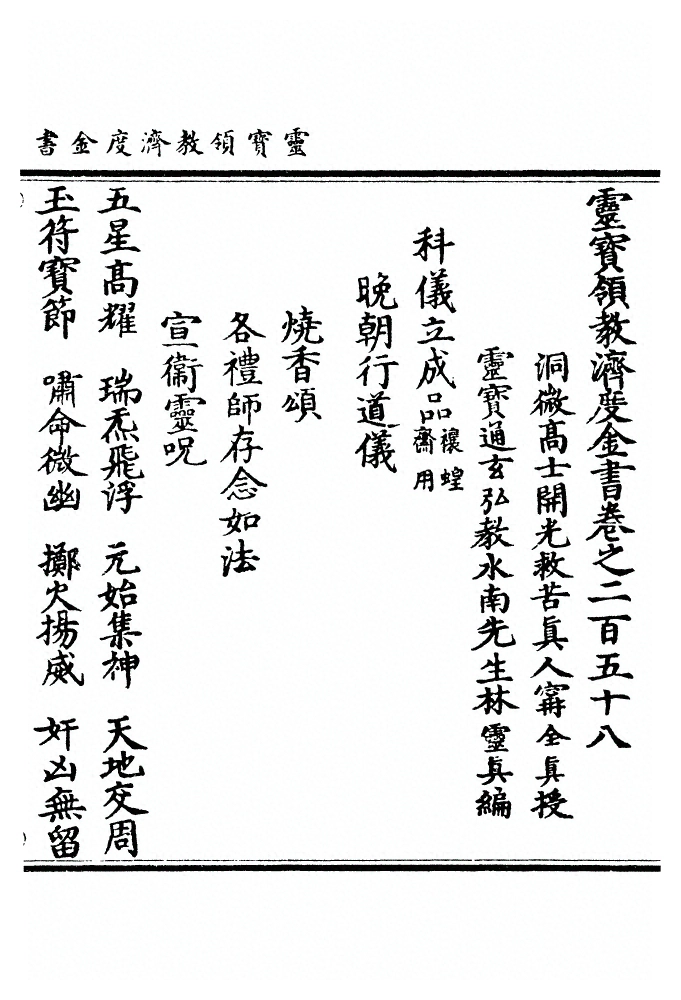 靈寶領教濟度金書
靈寶領教濟度金書卷之二百五十八
洞微高士開光救苦眞人甯全眞授
靈寶通玄弘教水南先生林靈眞編
科儀立成品禳蝗齋用
晚朝行道儀
燒香頌
各禮師存念如法
宣衞靈呪
五星高耀 瑞炁飛浮 元始集神 天地交周
玉符寶節 嘯命微幽 擲火揚威 奸凶無留